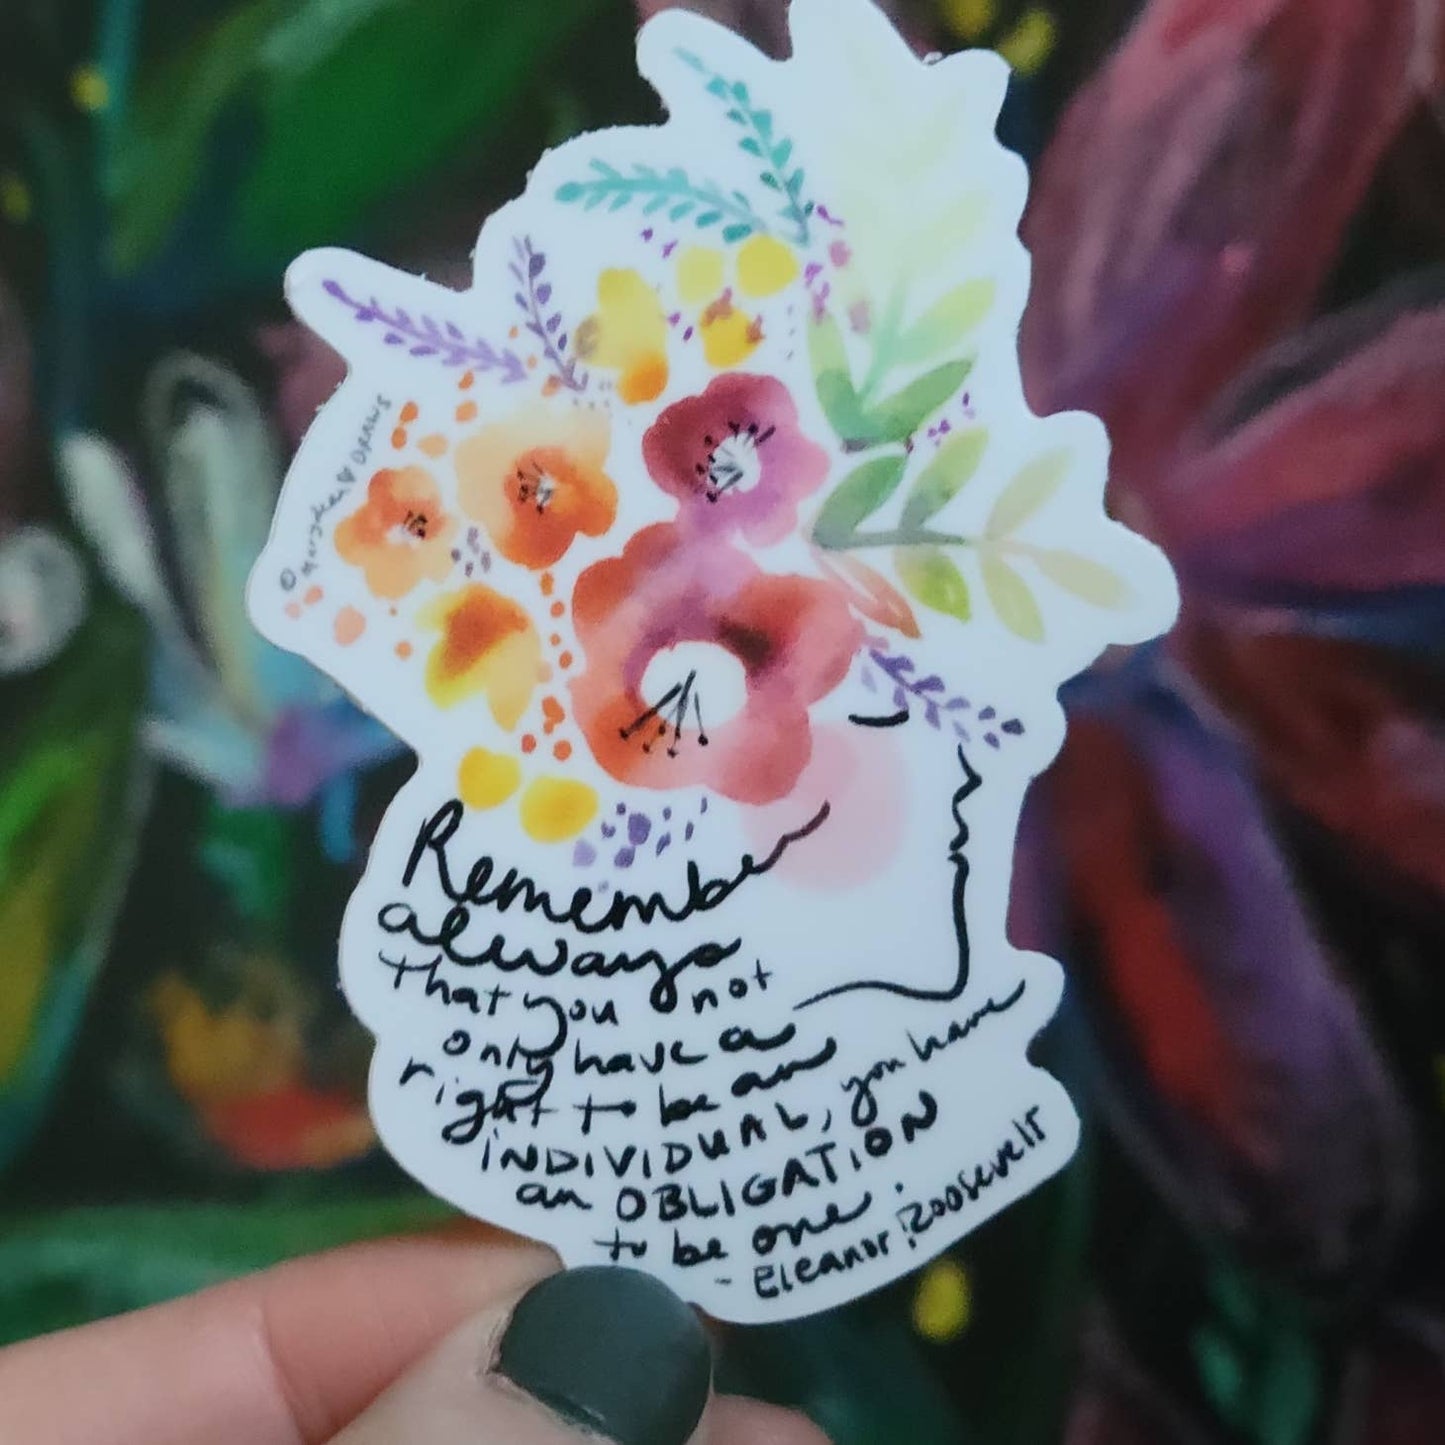 Remember
always
that you not
only have a
right to be an
INDIVIDUAL, you have
an OBLIGATION
to be one.
- Eleanor Roosevelt
©